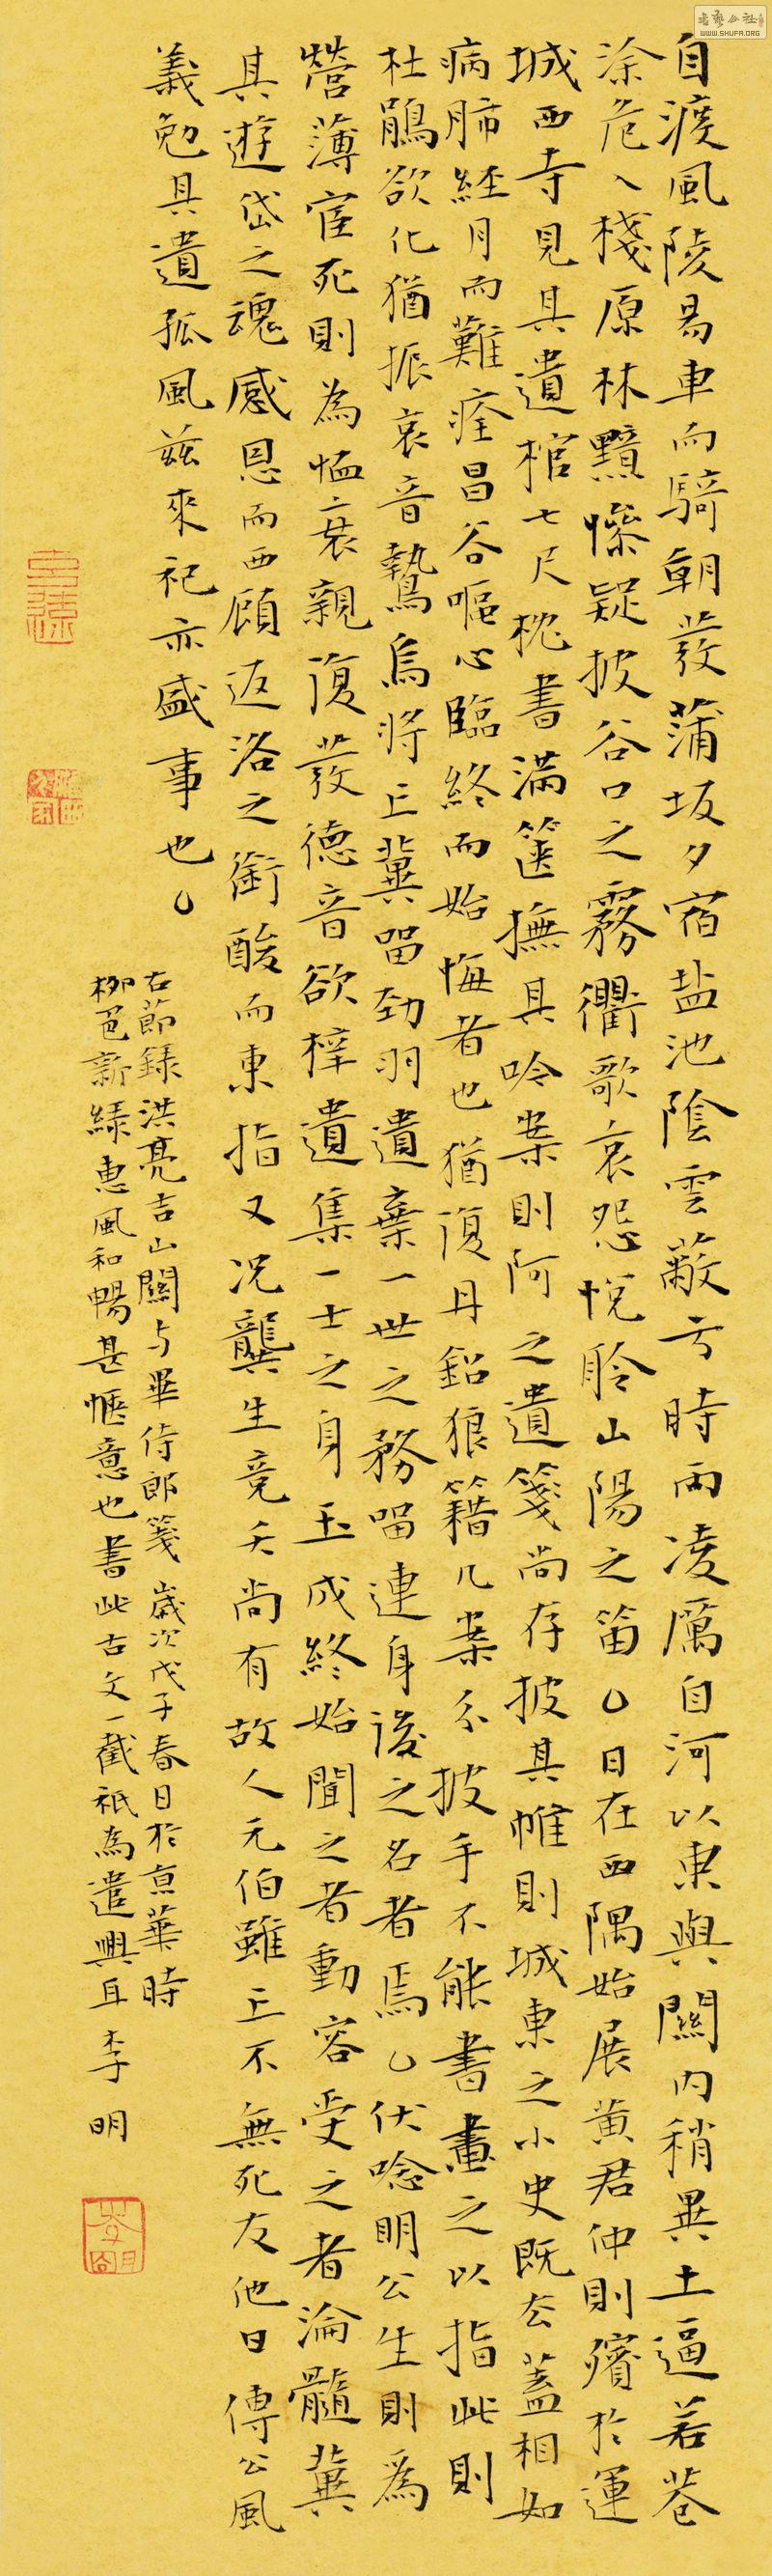 自渡風陵易車而騎朝發蒲坂夕宿盐池陰雲蔽亏時雨凌厲自河以東與關內稍異土逼若巷
涂危入棧原林黯慘疑披谷口之霧衢歌哀怨恍聆山陽之笛乙日在西隅始展黄君仲則殯於運
城西寺見其遺棺七尺枕書滿篋撫其吟案則阿之遺箋尚存披其帷則城東之小史既去蓋相如
病肺經月而難痊昌谷嘔心臨終而始悔者也猶復丹鉛狼籍几案分披手不能書畫之以指此則
杜鵑欲化猶振哀音鷙鳥將亡冀留劲羽遺棄一世之務留連身後之名者焉乙伏唸明公生則為
營薄宦死則為恤衰親復發德音欲梓遺集一士之身玉成終始聞之者動容受之者淪髓冀
其遊岱之魂感恩而西顧返洛之銜酸而東指又况龔生竟夭尚有故人元伯雖亡不無死友他日傳公風
義勉其遺孤風茲來祀亦盛事也乙
右節録洪亮吉出關与畢侍郎箋 歲次戊子春日於京華時
柳色新緑惠風和暢甚惬意也書此古文一截祇為遣興耳李明
WWW.SHUFA.ORG